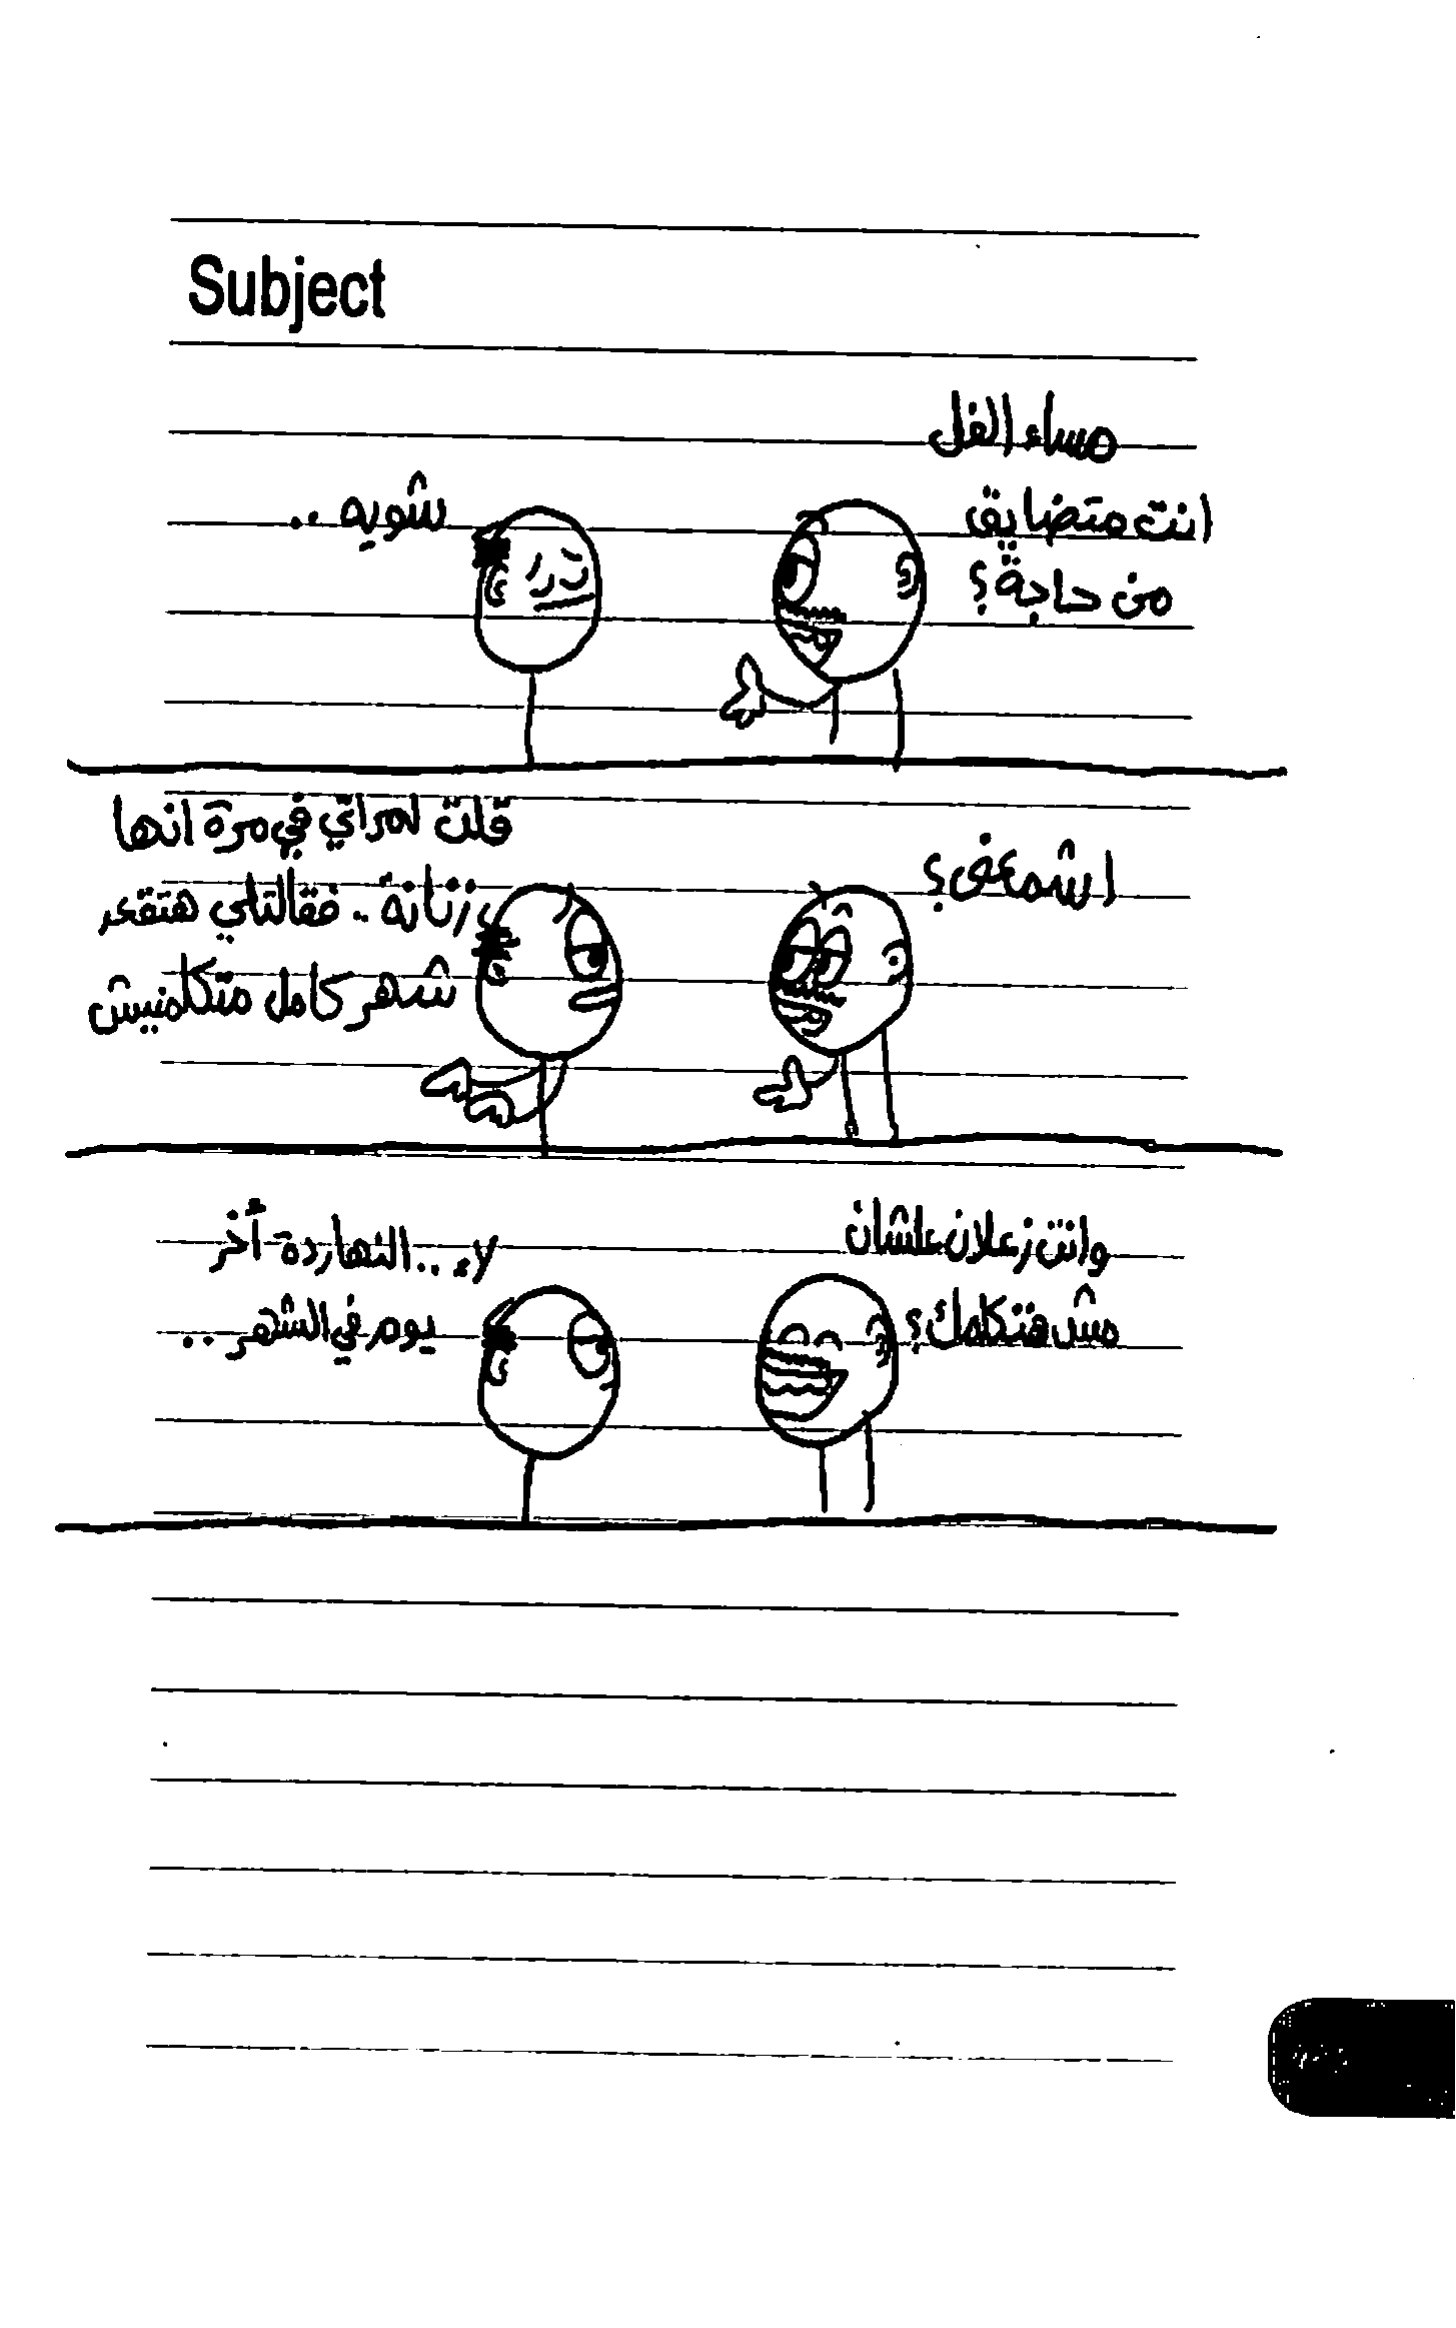 Subject
مساء الفل
انت متضايق
من حاجة؟
شويه ..
اشمعنى؟
قلت لمراتي في مرة انها
زنانة .. فقالتلي هتقعد
شهر كامل متكلمنيش
وانت زعلان علشان
مش هتكلمك؟
لاء .. النهاردة أخر
يوم في الشهر ..